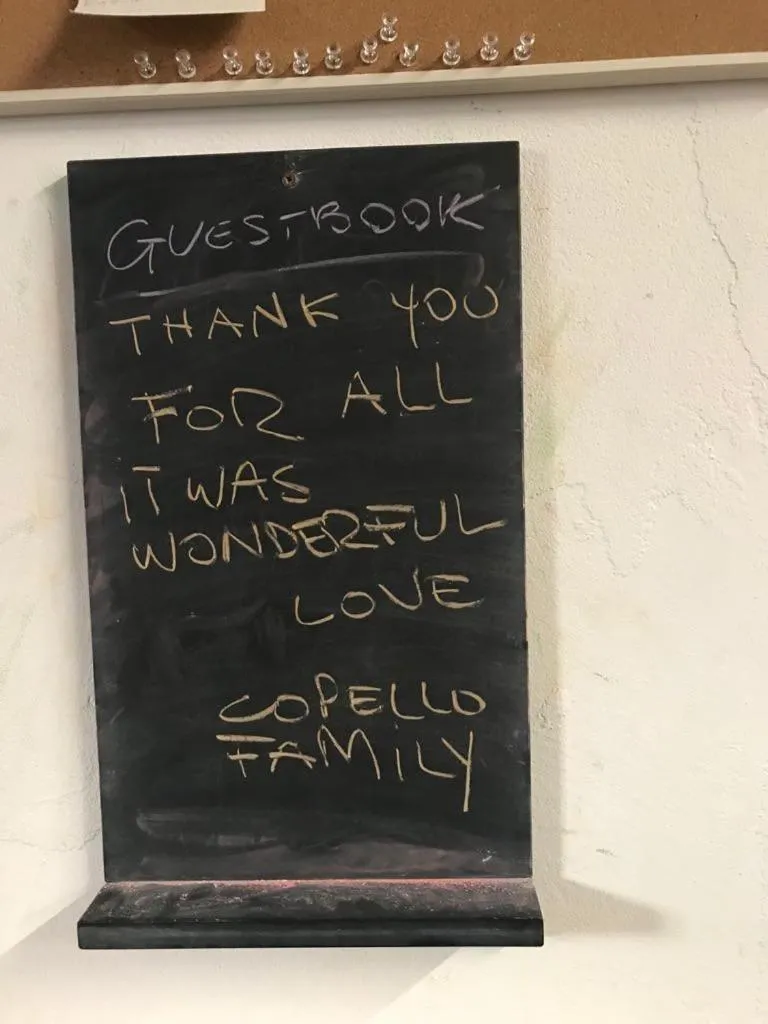 GUESTBOOK
THANK YOU
FOR ALL
iT WAS
WONDERFUL
LOVE
COPELLO
FAMiLY